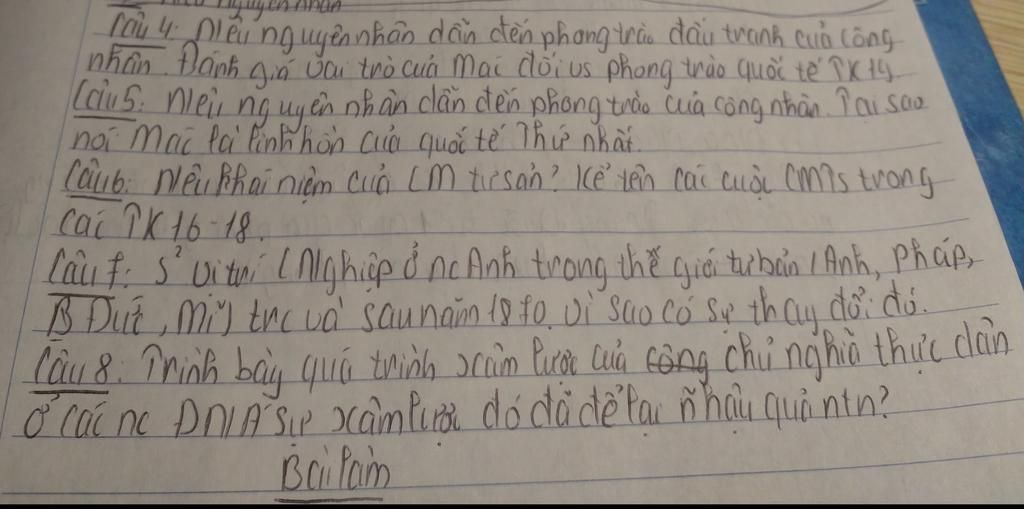 nguyên nhân
Câu 4: Nêu nguyên nhân dẫn đến phong trào đấu tranh của công
nhân. Đánh giá vai trò của Mac đối vs phong trào quốc tế TK19.
Câu 5: Nêu nguyên nhân dẫn đến phong trào của công nhân. Tại sao
nói Mac là linh hồn của quốc tế Thứ nhất.
Câu 6: Nêu khái niệm của CM tư sản? Kể tên các cuộc CMTS trong
các TK 16-18.
Câu 7: S² vị trí CNghiệp ở nc Anh trong thế giới tư bản (Anh, pháp,
Đức, Mĩ) trc và sau năm 1870. Vì sao có sự thay đổi đó.
Câu 8: Trình bày quá trình xâm lược của công chủ nghĩa thực dân
ở các nc ĐNA Sự xâm lược đó đã để lại hậu quả ntn?
Bài làm